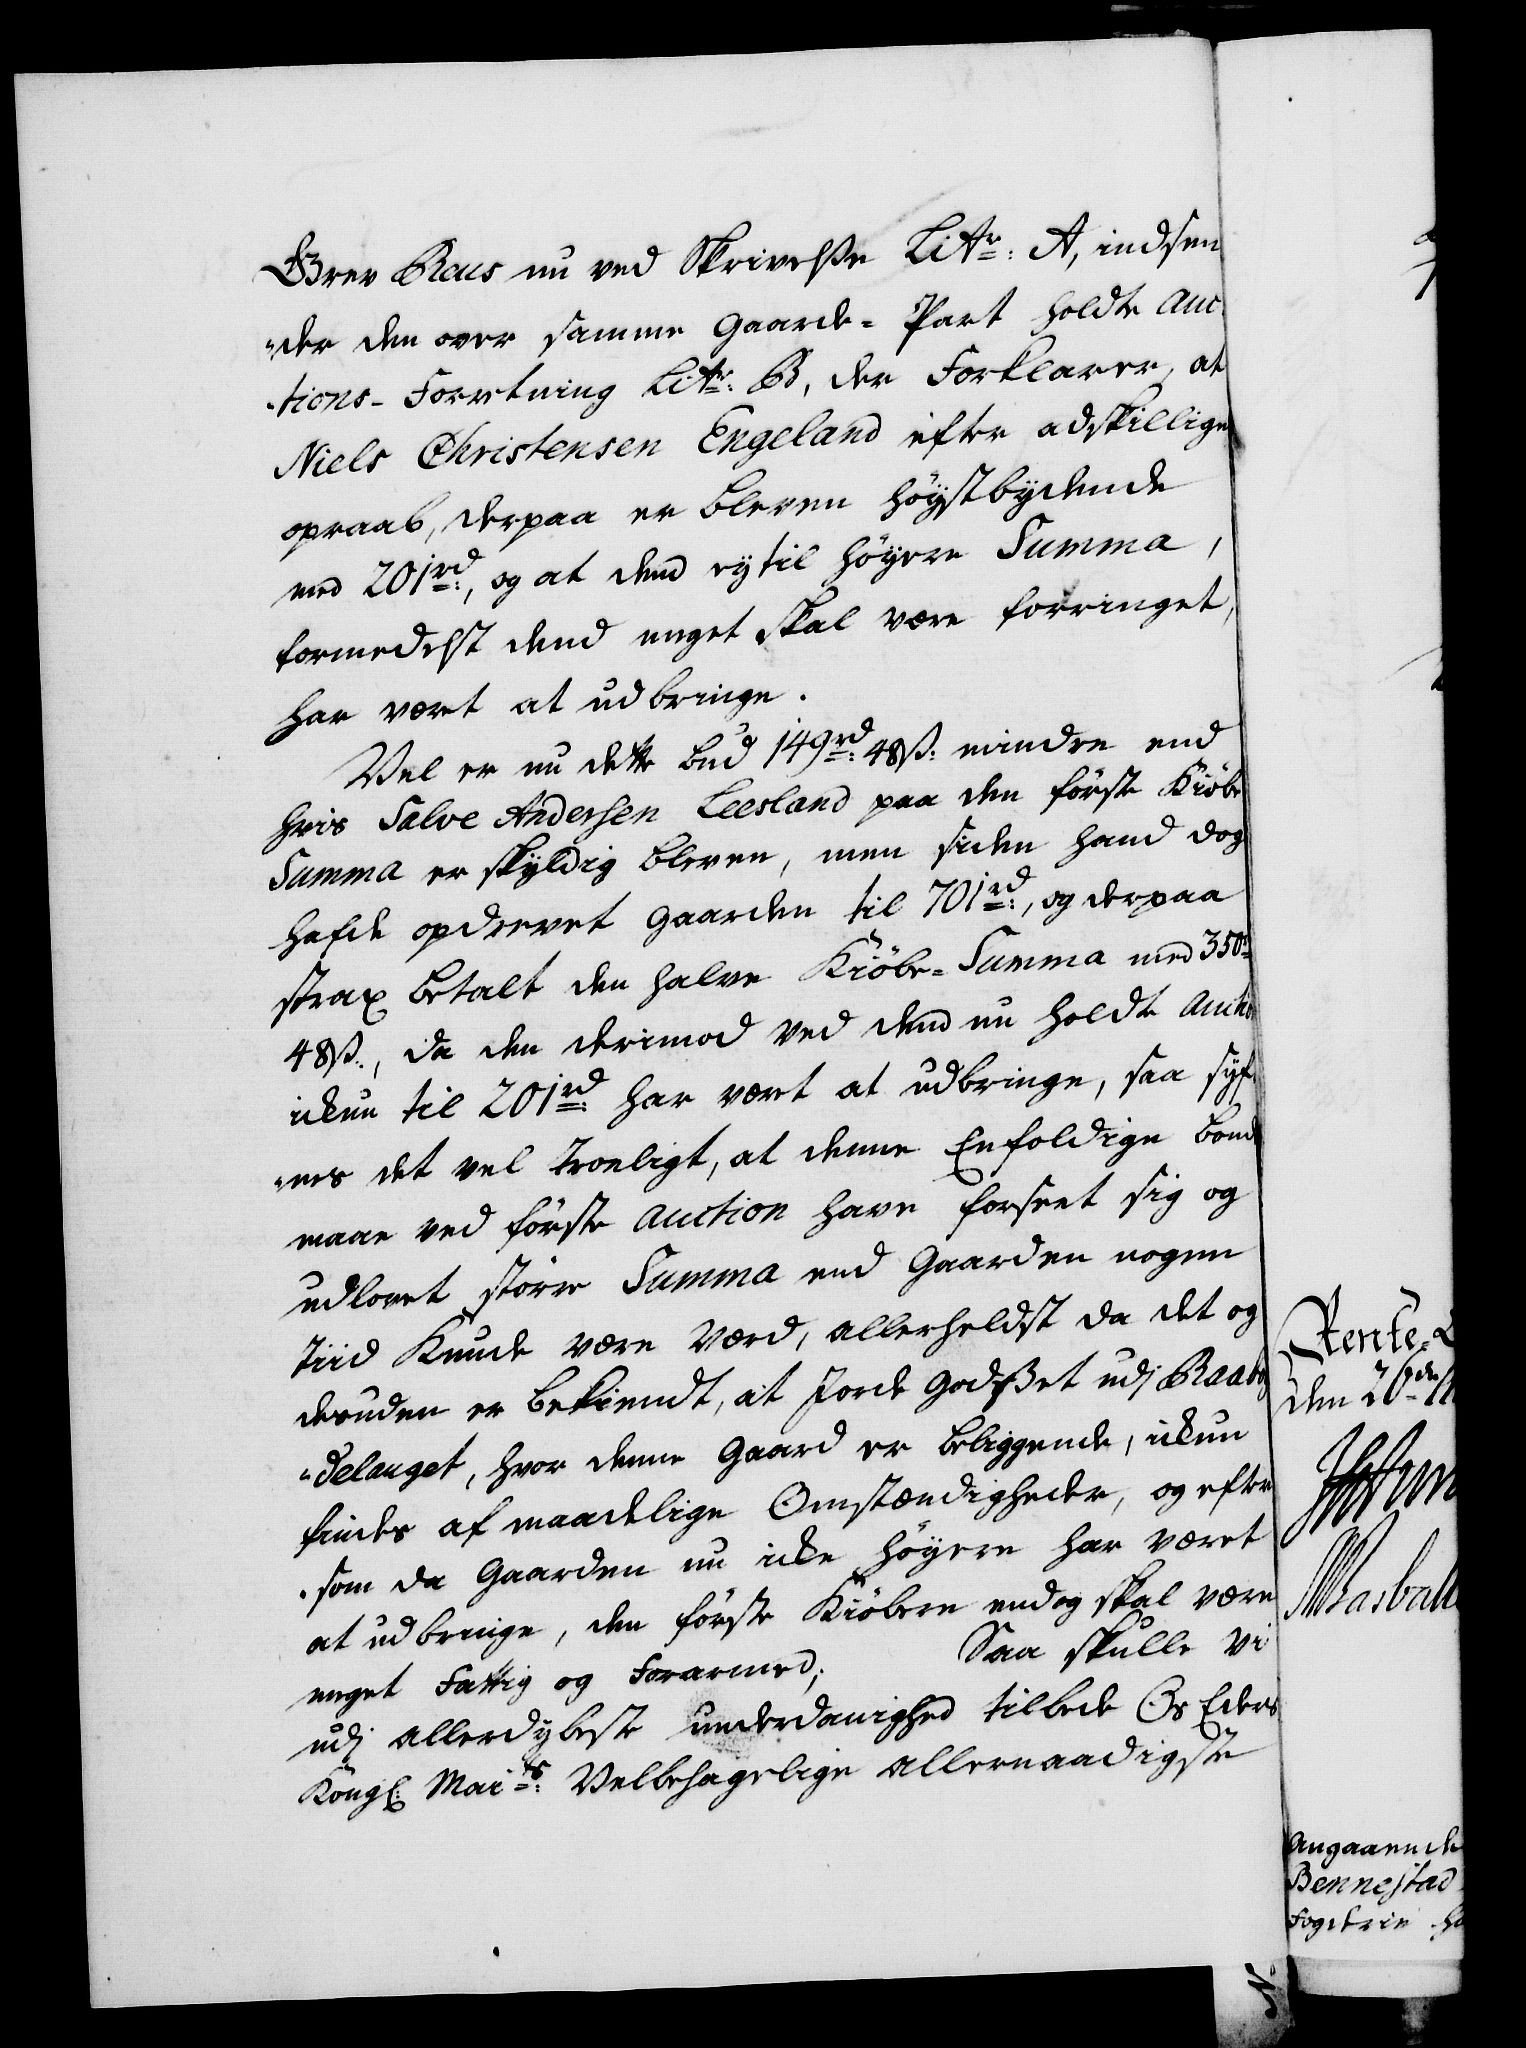 Grev Reus nu ved Skrivelsse Litr: A, indsen
"der den over samme Gaarde-Part holdte Auc
"tions-Forretning Litr: B, der Forklarer, at
Niels Christensen Engeland efter adskillige
opraab, derpaa er bleven høystbydende
med 201rd:, og at dend ey til høyere Summa,
formedelst dend meget skal være forringet,
har vært at udbringe.
Vel er nu dette bud 149rd: 48ß: mindre end
hvis Salve Andersen Leesland paa den første Kiøbe
Summa er skyldig bleven, men siden hand dog
hafde opdrevet Gaarden til 701rd:, og derpaa
strax betalt den halve Kiøbe-Summa med 350rd
48ß:, da den derimod ved dend nu holdte Auctio
ickun til 201rd: har vært at udbringe, saa syf
"nes det vel troeligt, at denne Enfoldige bonde
maae ved første Auction have forseet sig og
udlovet større Summa end Gaarden nogen
Tiid Kunde være Værd, allerheldst da det og
desuden er bekiendt, at Jorde Godsset udj Raabyg
"delauget, hvor denne Gaard er beliggende, ickun
findes af maadelige Omstændigheder, og efter
"som da Gaarden nu icke høyere har været
at udbringe, den første Kiøbere endog skal være
meget Fattig og Forarmed; Saa skulle Vi
udj allerdybeste underdanighed tilbede Os Eders
Kongl: Maits: Velbehagelige allernaadigste
Rente-
den 26de
Angaaende
Bennestad
Fogderie
N.